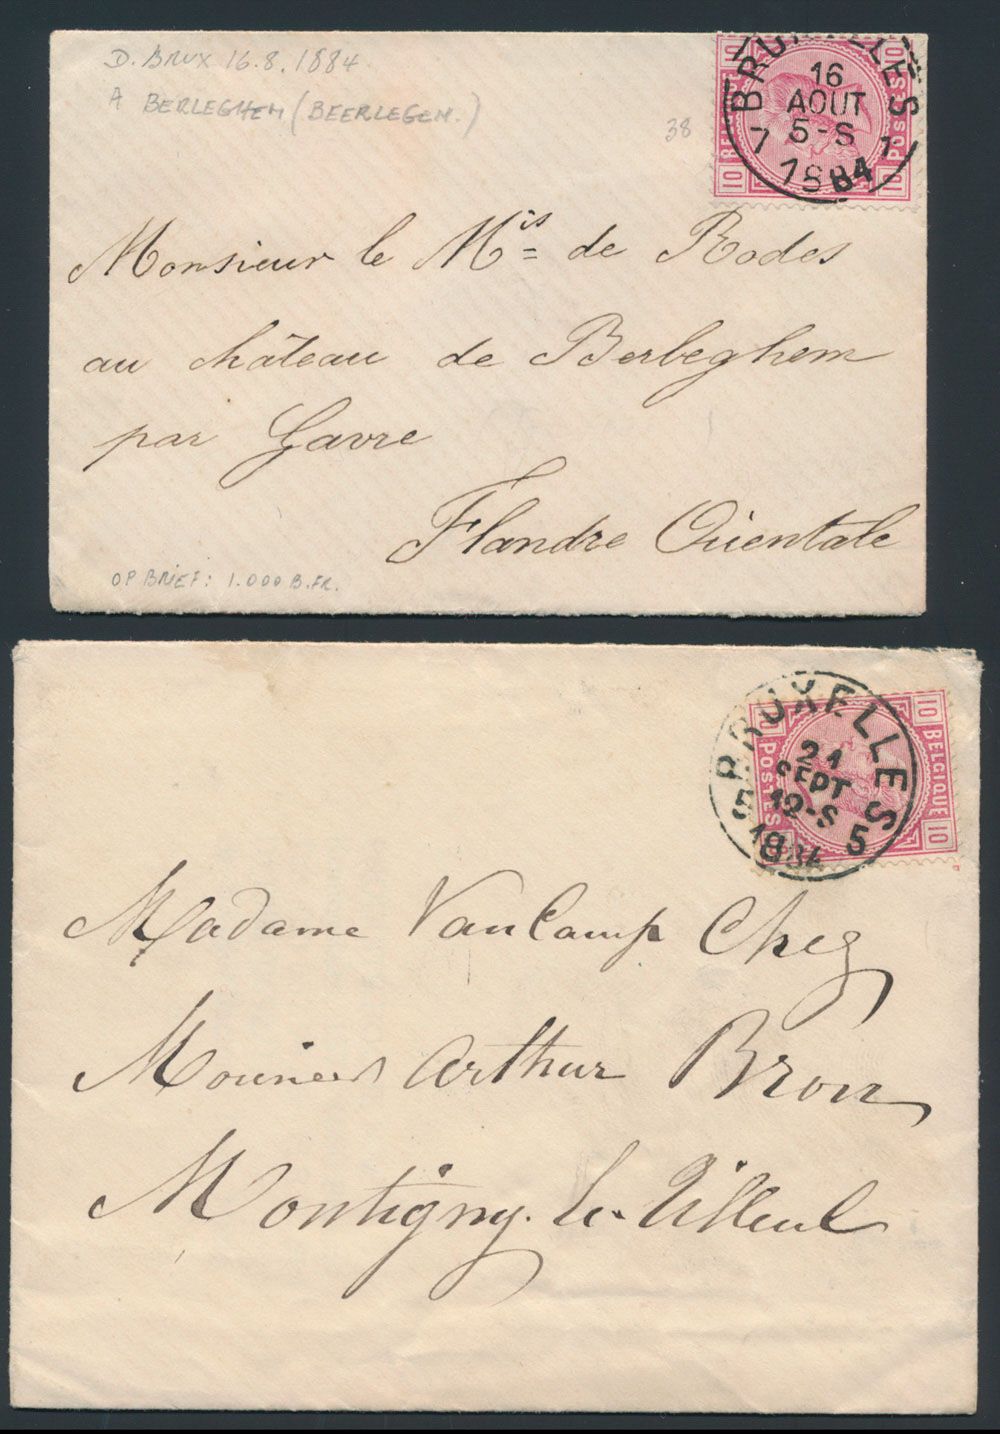 D. BRUX 16.8.1884
A BERLEGHEM (BEERLEGEM.)
38
BRUXELLES
16
AOUT
5-S
7 1
1884
10 BELGIQUE 10
10 POSTES 10
Monsieur le Mis de Rodes
au château de Berleghem
par Gavre
Flandre Orientale
OP BRIEF: 1.000 B.FR.
BRUXELLES
21
SEPT
12-S
5 5
1884
10 BELGIQUE 10
POSTES
Madame VanCamp Chez
Monsieur Arthur Bron
Montigny-le-Tilleul